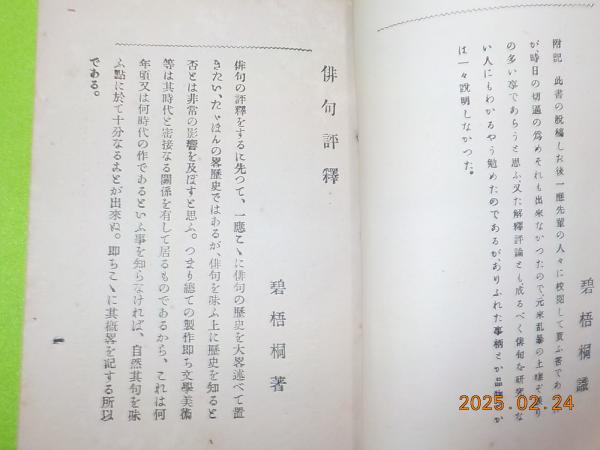 附記 此書の脱稿しお後一應先輩の人々に校閲して貰ふ筈であ
が、時日の切迫の爲めそれも出來なかつたので、元來乱暴の上嘸ぞ誤り
の多い事であらうと思ふ、又た解釋評論とも、成るべく俳句を研究
い人にもわかるやう勉めたのであるがありふれた事柄とか品物
は一々説明しなかつた。
碧梧桐識
俳句評釋
碧梧桐著
俳句の評釋をするに先つて、一應こゝに俳句の歷史を大畧述べて置
きたい、たゞほんの畧歷史ではあるが、俳句を味ふ上に歷史を知ると
否とは非常の影響を及ぼすと思ふ。つまり總ての製作即ち文學美術
等は其時代と密接なる關係を有して居るものであるから、これは何
年頃又は何時代の作であるといふ事を知らなければ、自然其句を味
ふ點に於て十分なることが出來ぬ。即ちこゝに其概畧を記する所以
である。
2025.02.24